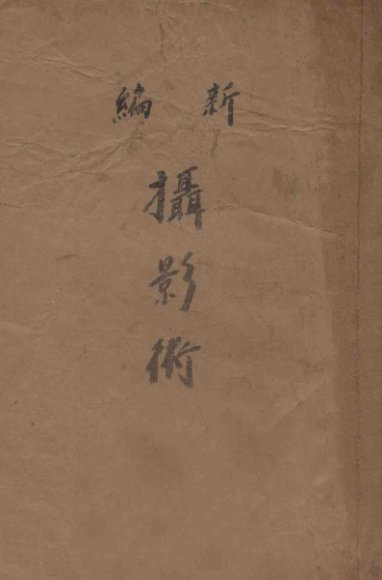 新編
攝影術